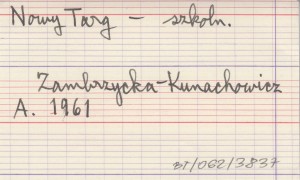 Nowy Targ – szkoln.
Zambrzycka-Kunachowicz
A. 1961
BT/062/3837